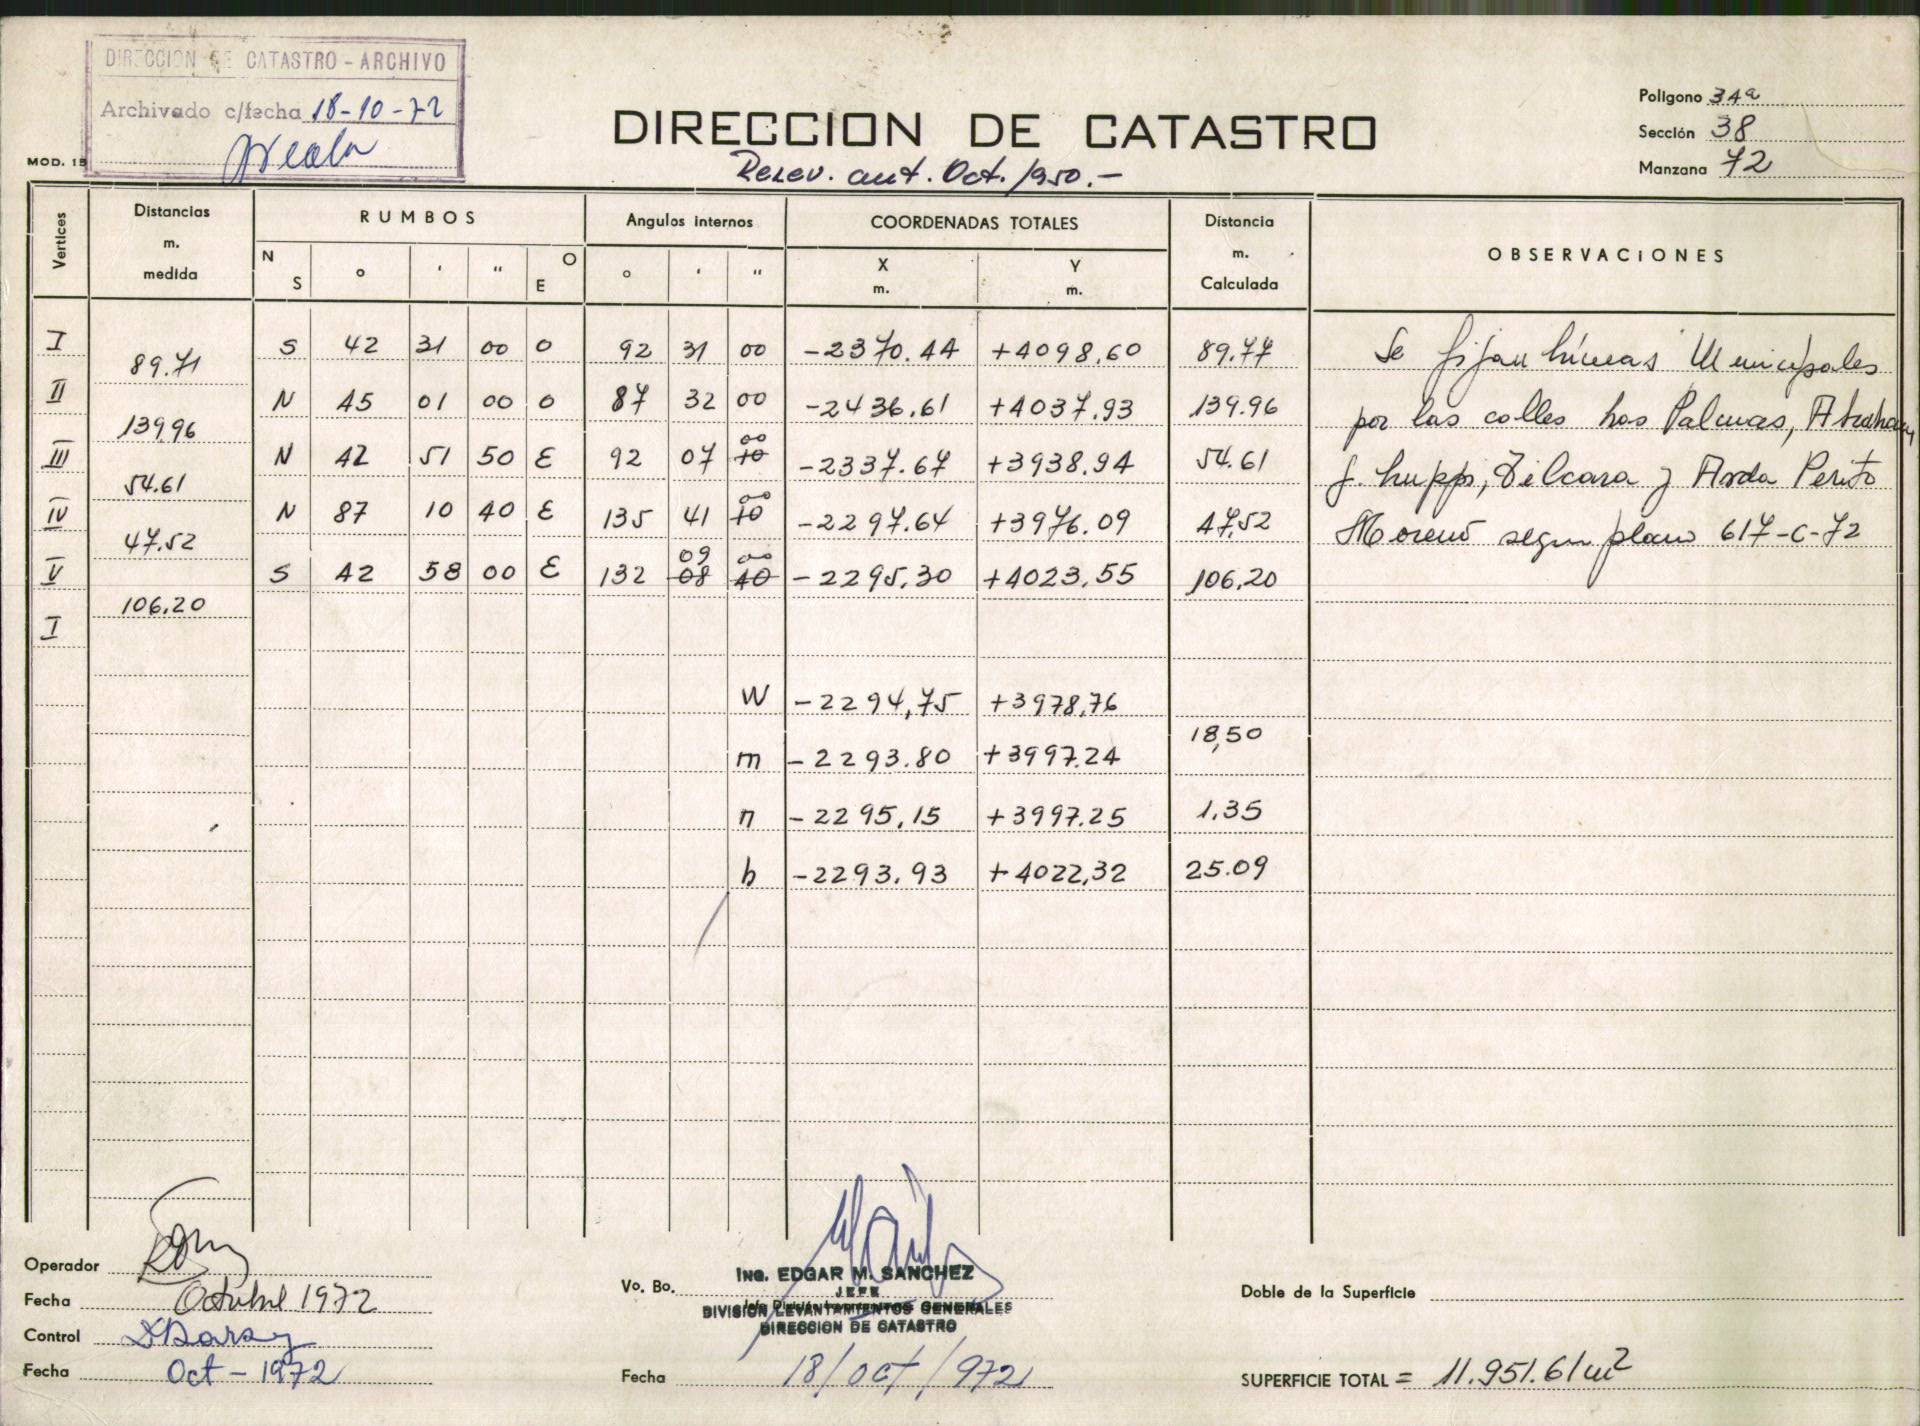 DIRECCION DE CATASTRO - ARCHIVO
Archivado c/fecha 18-10-72
MOD. 15
DIRECCION DE CATASTRO
Relev. ant. Oct. /950.-
Polígono 34a
Sección 38
Manzana 72
Vertices Distancias m. medida RUMBOS Angulos internos COORDENADAS TOTALES Distancia m. Calculada OBSERVACIONES
N S ° ' " O E ° ' " X m. Y m.
I S 42 31 00 O 92 31 00 -2370.44 +4098.60 89.77 Se fijan Líneas Municipales
89.71
II N 45 01 00 O 87 32 00 -2436.61 +4037.93 139.96 por las calles Las Palmas, Abraham
139.96
III N 42 51 50 E 92 07 00 10 -2337.67 +3938.94 54.61 J. Luppi, Tilcara y Avda Perito
54.61
IV N 87 10 40 E 135 41 00 10 -2297.64 +3976.09 47.52 Moreno segun plano 617-C-72
47.52
V S 42 58 00 E 132 09 08 00 40 -2295.30 +4023.55 106.20
106.20
I
W -2294,75 +3978,76
18,50
m -2293.80 +3997.24
n -2295,15 +3997.25 1,35
b -2293.93 +4022,32 25.09
Operador
Fecha Octubre 1972
Control
Fecha Oct - 1972
Vo. Bo.
Ing. EDGAR M. SANCHEZ
JEFE
DIVISION LEVANTAMIENTOS GENERALES
DIRECCION DE CATASTRO
Fecha 18/Oct/972
Doble de la Superficie
SUPERFICIE TOTAL = 11.951.61 m2